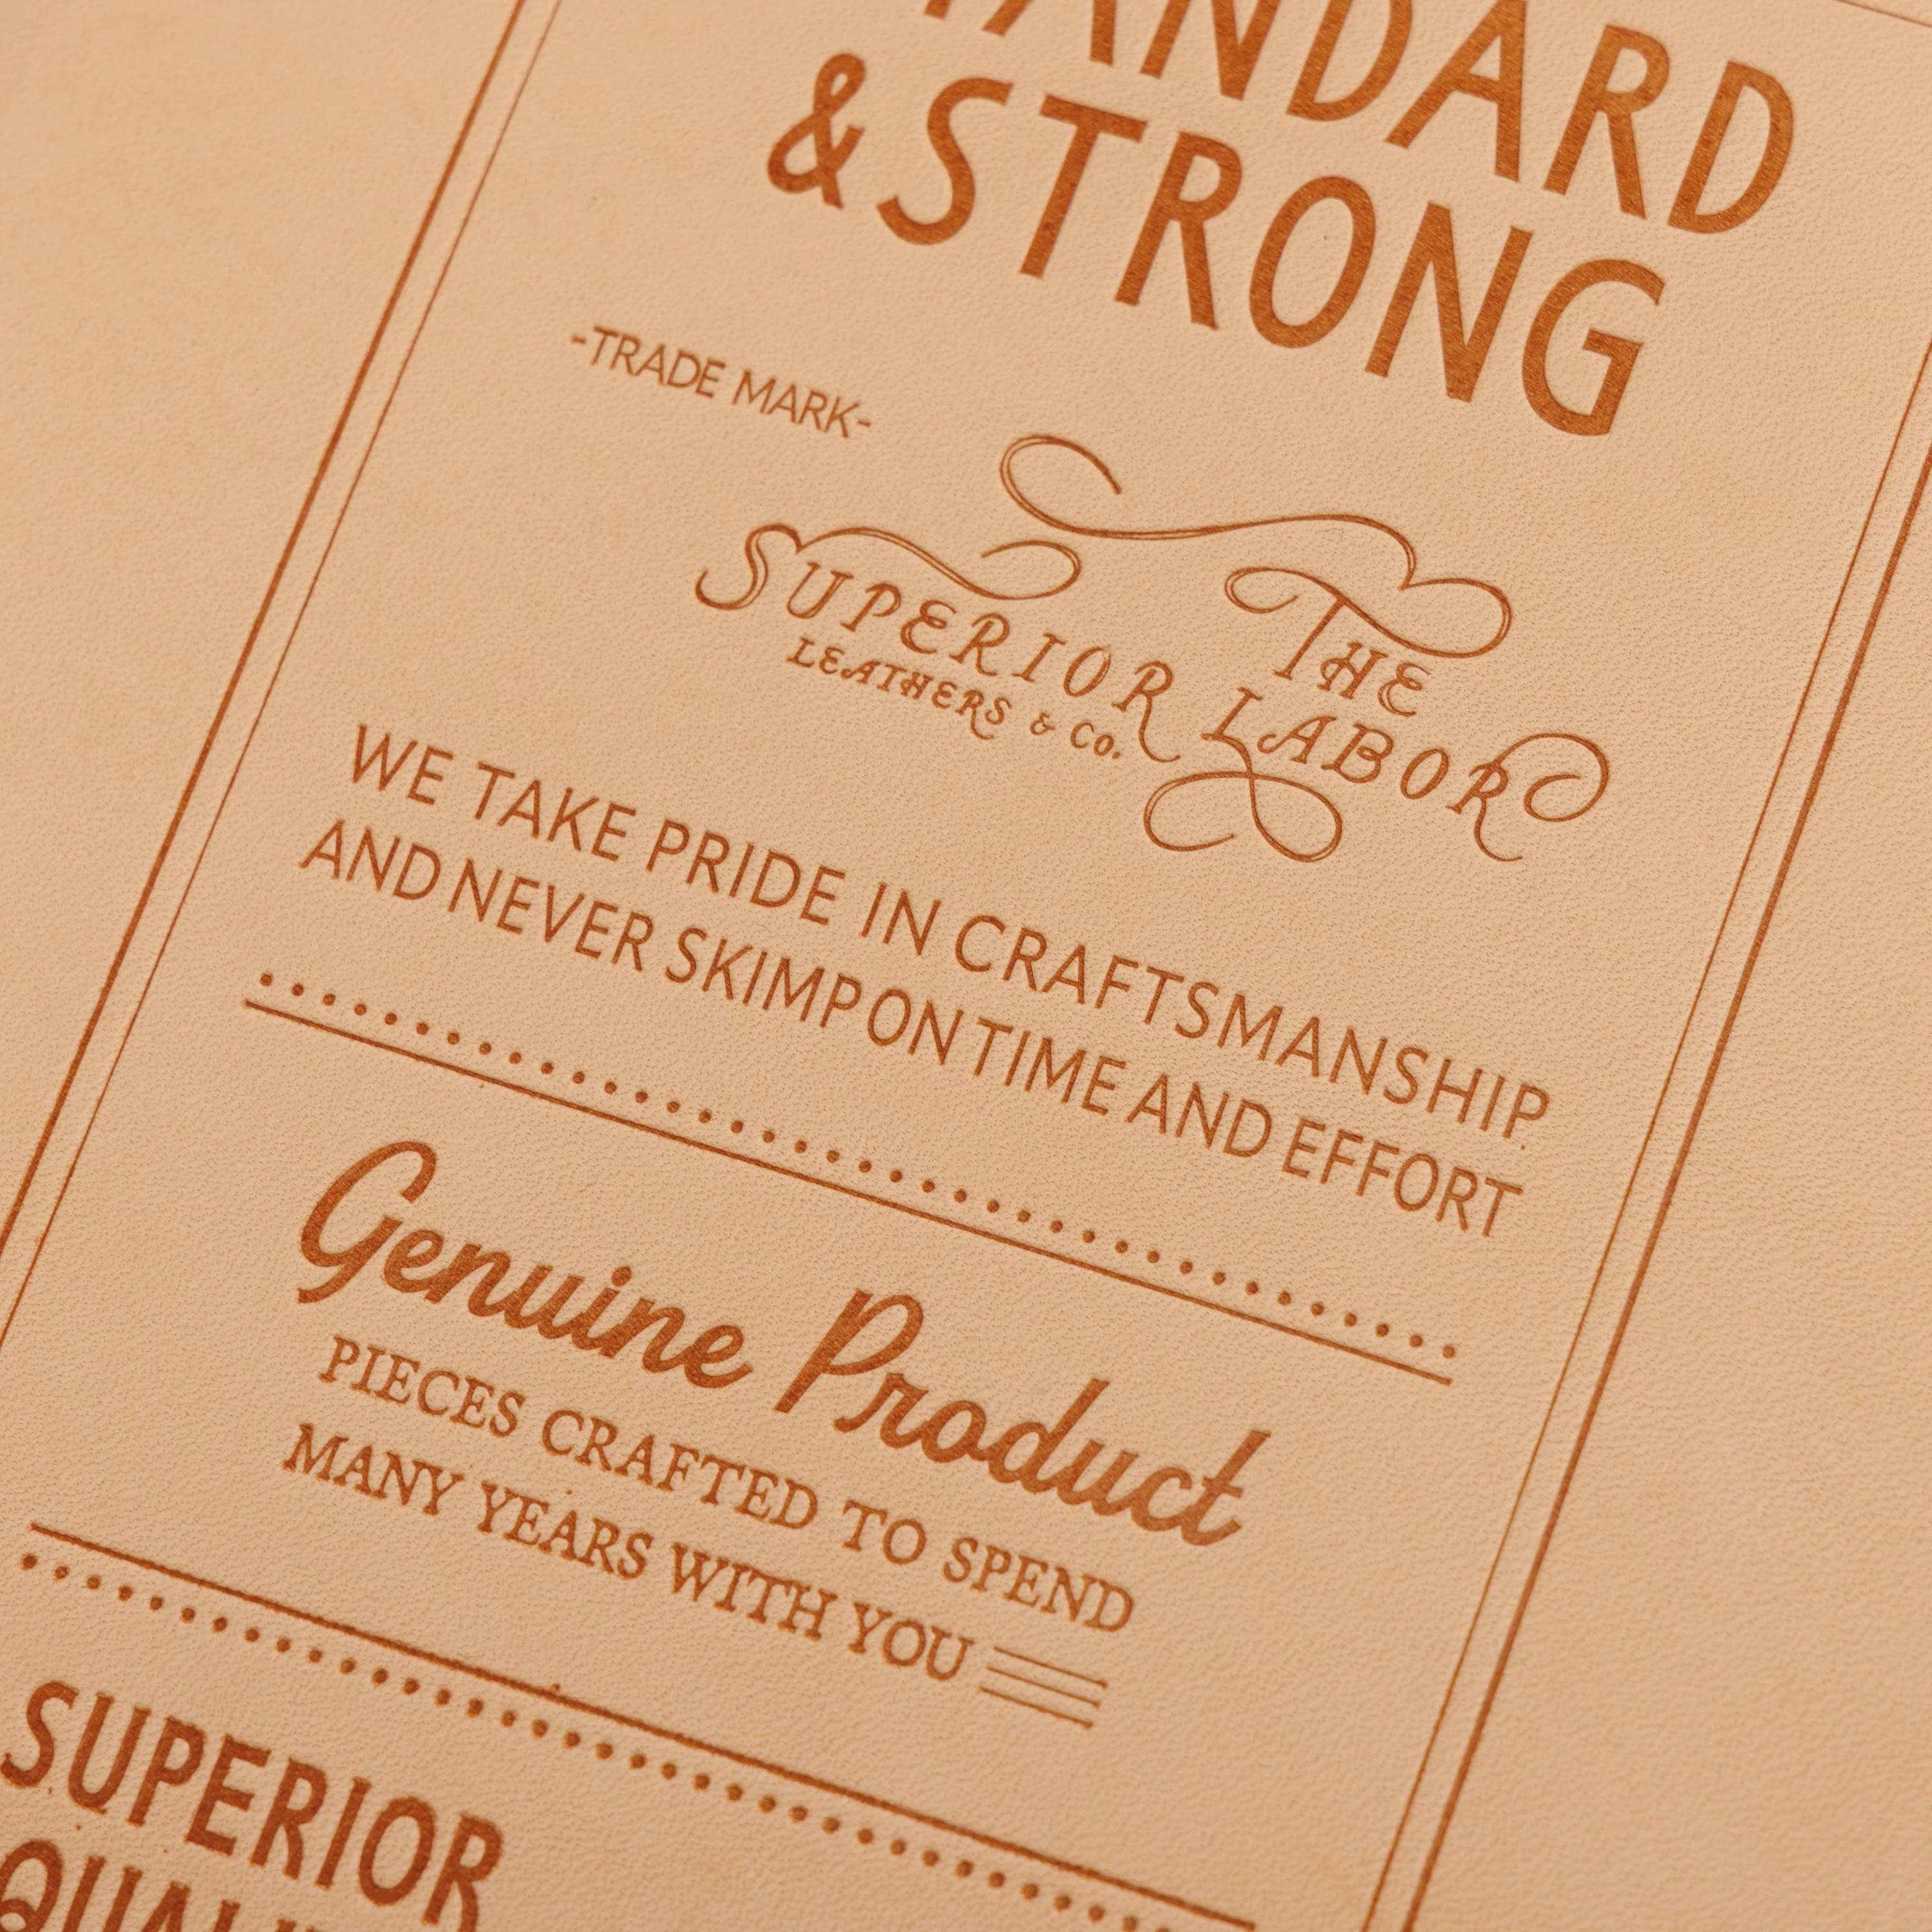 & STRONG
-TRADE MARK-
THE
SUPERIOR LABOR
LEATHERS & Co.
WE TAKE PRIDE IN CRAFTSMANSHIP.
AND NEVER SKIMP ON TIME AND EFFORT
Genuine Product
PIECES CRAFTED TO SPEND
MANY YEARS WITH YOU
SUPERIOR